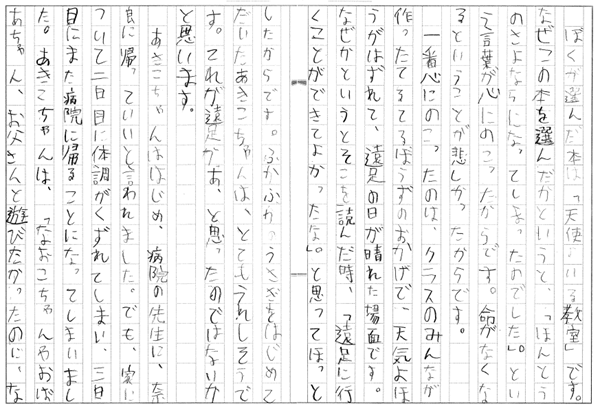 ぼくが選んだ本は、「天使のいる教室」です。
なぜこの本を選んだかというと、「ほんとう
のさよならになってしまったのでした。」とい
う言葉が心にのこったからです。命がなくな
るということが悲しかったからです。
一番心にのこったのは、クラスのみんなが
作ったてるてるぼうずのおかげで、天気よほ
うがはずれて、遠足の日が晴れた場面です。
なぜかというとそこを読んだ時、「遠足に行
くことができてよかったな。」と思ってほっと
したからです。ふかふかのうさぎをはじめて
だいたあきこちゃんは、とてもうれしそうで
す。これが遠足かあ、と思ったのではないか
と思います。
あきこちゃんははじめ、病院の先生に、奈
良に帰っていいと言われました。でも、家に
ついて二日目に体調がくずれてしまい、三日
目にまた病院に帰ることになってしまいまし
た。あきこちゃんは、「なおこちゃんやおば
あちゃん、お父さんと遊びたかったのに、な